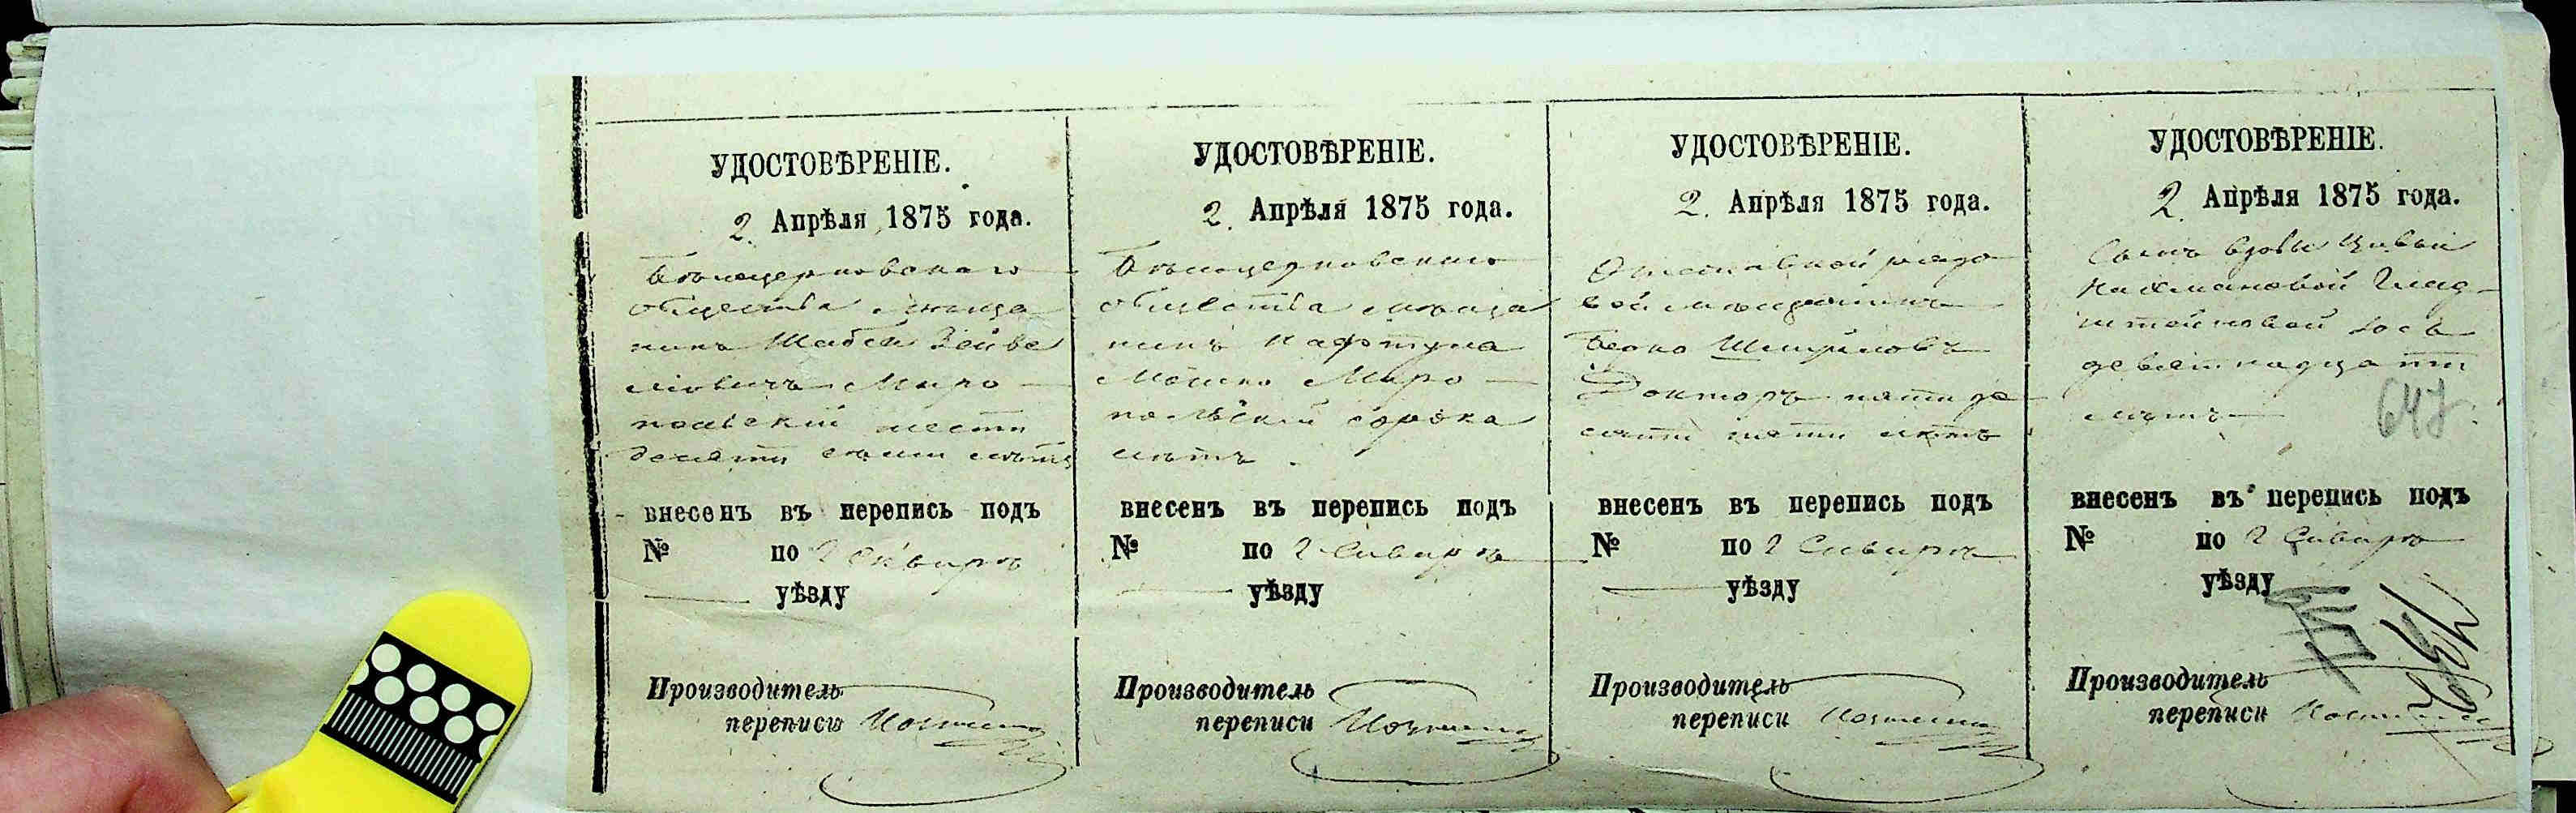 УДОСТОВѢРЕНІЕ.
2. Апрѣля 1875 года.
Бѣлоцерковскаго
общества мѣща
нинъ Шабса Зейве
левичъ Миро-
польскій шесть
десяти семи лѣтъ
внесенъ въ перепись подъ
№ по г Сквирѣ
уѣзду
Производитель
переписи
УДОСТОВѢРЕНІЕ.
2. Апрѣля 1875 года.
Бѣлоцерковскаго
общества мѣща
нинъ Нафтула
Мошко Миро-
польскій сорока
лѣтъ.
внесенъ въ перепись подъ
№ по г Сквирѣ
уѣзду
Производитель
переписи
УДОСТОВѢРЕНІЕ.
2. Апрѣля 1875 года.
Отставной рядо
вой
Берко Шмуйловъ
Докторъ пяти де
сяти пяти лѣтъ
внесенъ въ перепись подъ
№ по г Сквирѣ
уѣзду
Производитель
переписи
УДОСТОВѢРЕНІЕ.
2. Апрѣля 1875 года.
Сынъ вдовы Цивьи
Нахмановой Глад-
штейновой Іось
девятнадцати
лѣтъ
647
внесенъ въ перепись подъ
№ по г Сквирѣ
уѣзду
Производитель
переписи